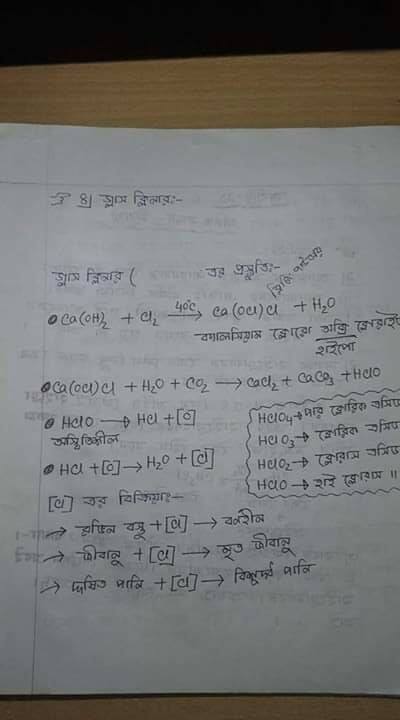 ৪। গ্লাস ক্লিনার:-
গ্লাস ক্লিনার ( এর প্রস্তুতি:-
ব্লিচিং পাউডার
Ca(OH)₂ + Cl₂ 40°C → Ca(OCl)Cl + H₂O
ক্যালসিয়াম ক্লোরো অক্সি ক্লোরাইড
হাইপো
Ca(OCl)Cl + H₂O + CO₂ → CaCl₂ + CaCO₃ + HClO
HClO → HCl + [O]
অস্থিতিশীল
HCl + [O] → H₂O + [Cl]
HClO₄ → পার ক্লোরিক এসিড
HClO₃ → ক্লোরিক এসিড
HClO₂ → ক্লোরাস এসিড
HClO → হাই ক্লোরাস ॥
[Cl] এর বিক্রিয়া:-
→ রঙিন বস্তু + [Cl] → বর্ণহীন
→ জীবানু + [Cl] → মৃত জীবানু
→ দূষিত পানি + [Cl] → বিশুদ্ধ পানি